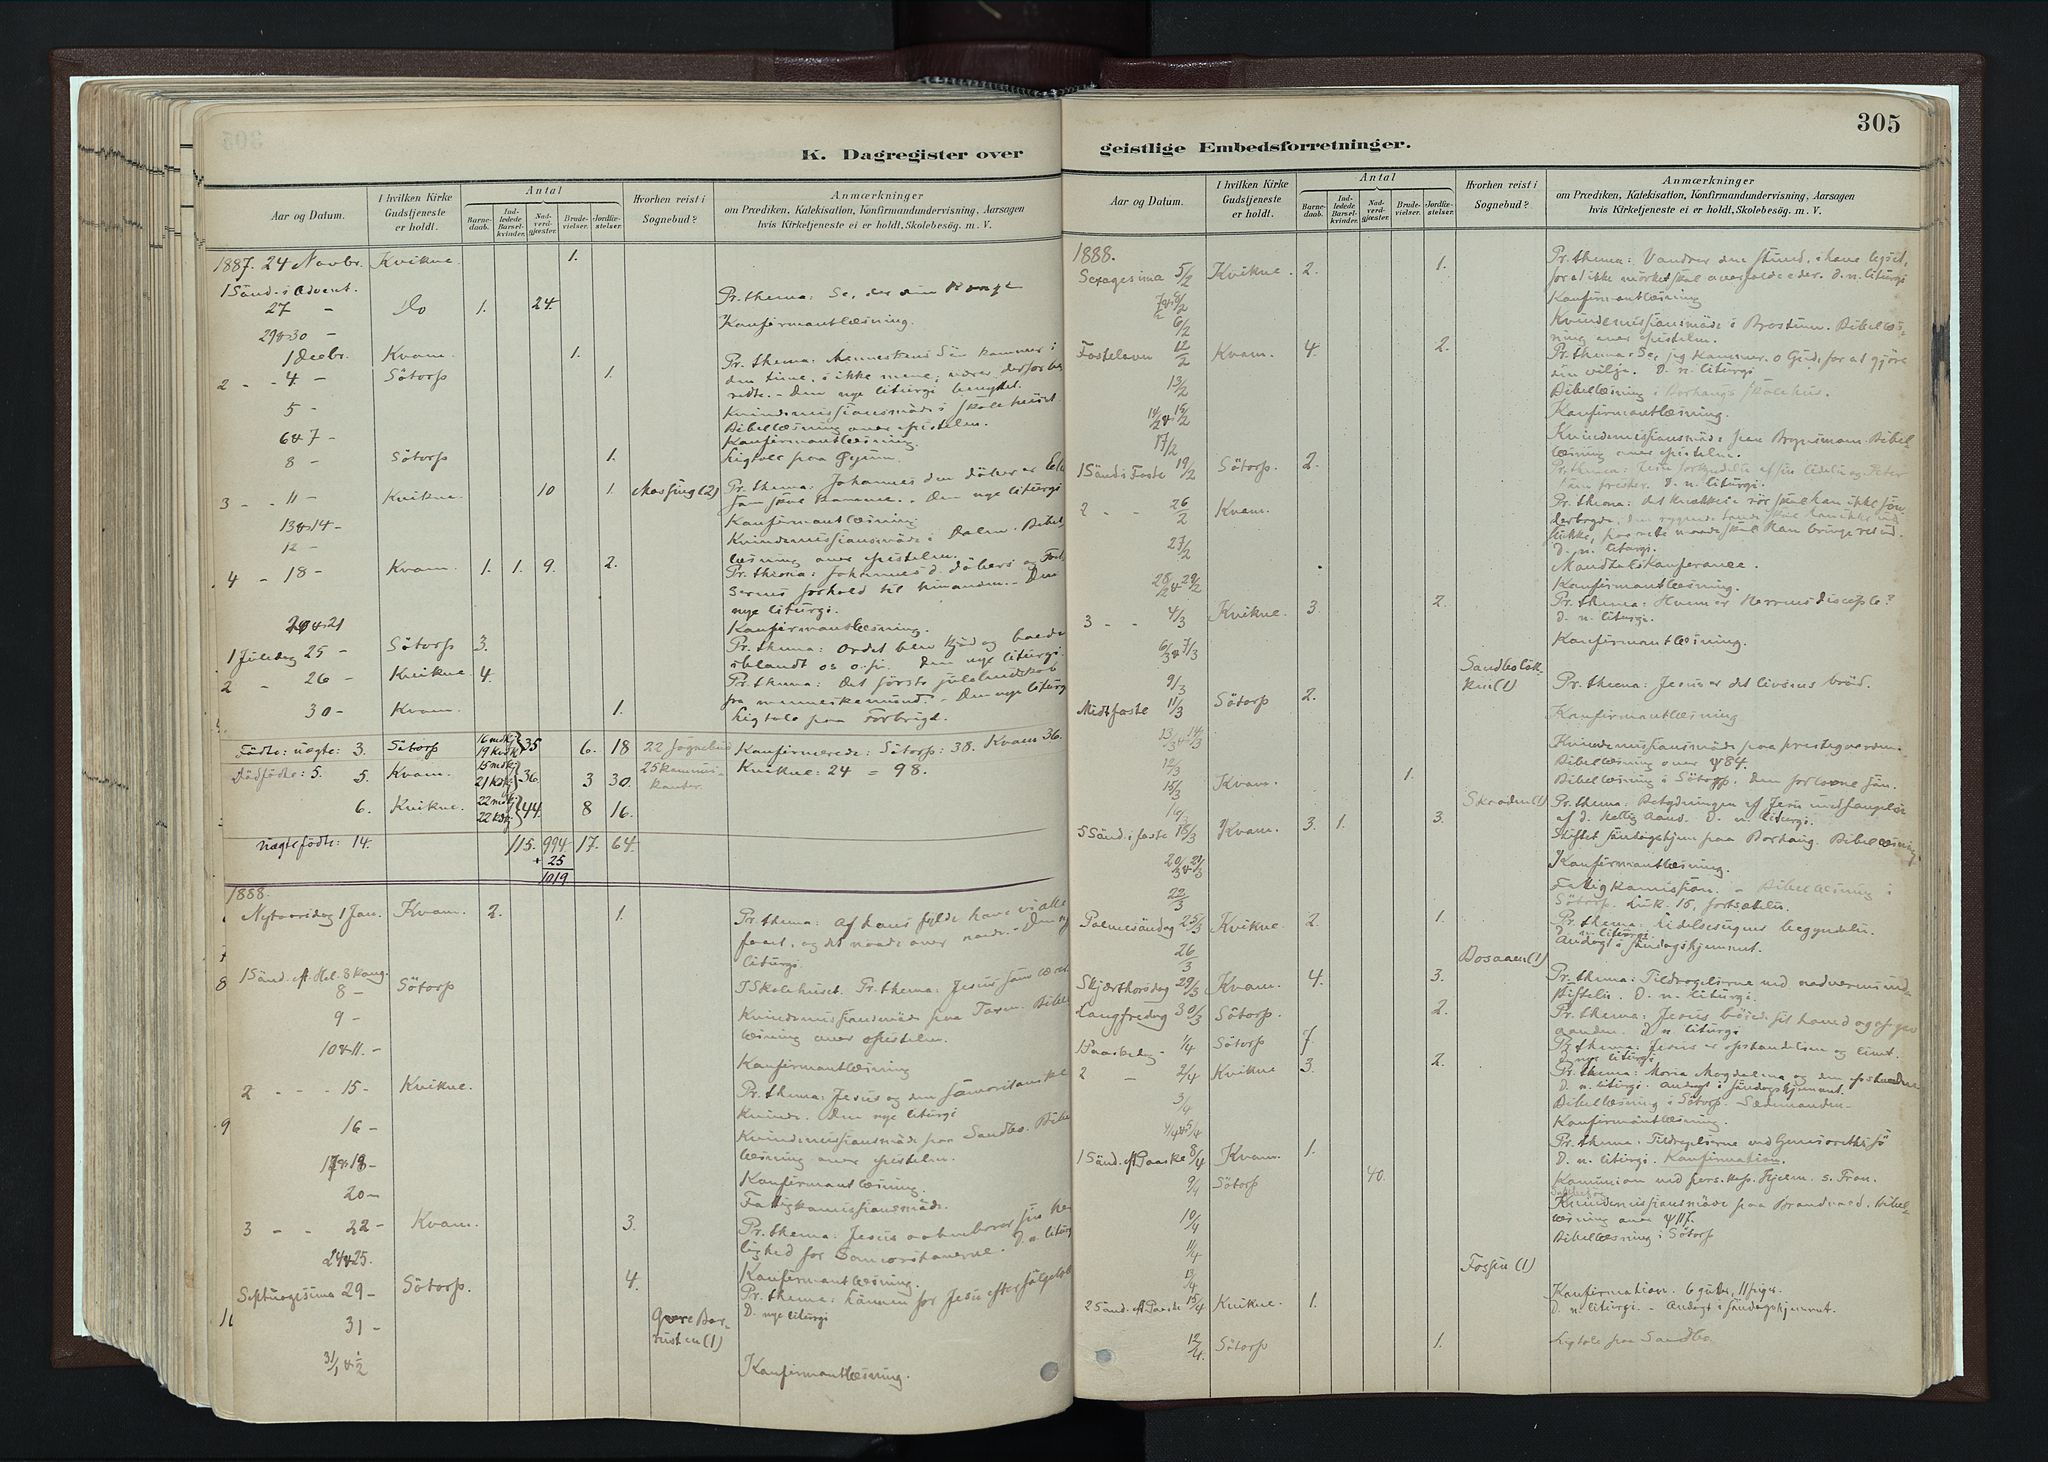 305
K. Dagregister over
Aar og Datum.
I hvilken Kirke Gudstjeneste er holdt.
Antal
Barne-daab.
Ind-ledede Barsel-kvinder.
Nad-verd-gjæster.
Brude-vielser.
Jordfæ-stelser.
Hvorhen reist i Sognebud?
Anmærkninger
om Prædiken, Katekisation, Konfirmandundervisning, Aarsagen
hvis Kirketjeneste ei er holdt, Skolebesög. m. V.
1887. 24 Novbr. Kvikne. 1.
1 Sönd. i Advent.
27 - Do 1. 24. Pr. thema: Se, der din Konge
29&30 - Konfirmantlæsning.
1 Decbr. Kvam. 1.
2 - - 4 - Sötorp 1. Pr. thema: Menneskens Sön kommer i
den time, i ikke mene; værer derfor be
redte. - Den nye liturgi benyttet.
5 - Kvindemissionsmöde i Skolehuset.
Bibellæsning over epistelen.
6&7 - Konfirmantlæsning.
8 - Sötorp 1. Ligtale paa Öyum.
3 - - 11 - Kvikne. 10 1. Massing (2) Pr. thema: Johannes den döber er Eli
som skal komme. - Den nye liturgi
13&14 - Konfirmantlæsning
12 - Kvindemissionsmöde i Dalen. Bibel
læsning over epistelen.
4 - 18 - Kvam. 1. 1. 9. 2. Pr. thema: Johannes d. döbers og Frel
serens forhold til hinanden. - Den
nye liturgi.
20&21 Konfirmantlæsning.
1 Juledag 25 - Sötorp 3. Pr. thema: Ordet blev kjöd og boede
iblandt os o.s.v. Den nye liturgi.
2 - 26 - Kvikne 4. Pr. thema: Det förste julebudskab
fra menneskemund. - Den nye liturg
30 - Kvam. 1. Ligtale paa Forbrigd.
Födte: uægte: 3. Sötorp 16 mdkj 19 kvdk } 35 6. 18 22 sognebud Konfirmerede: Sötorp: 38. Kvam 36.
Dödfödte: 5. 5. Kvam. 15 mdkj 21 kdkj } 36 3 30. 25 kommuni-kanter. Kvikne: 24 = 98.
6. Kvikne. 22 mdkj 22 kdkj } 44 8 16.
uægte födte: 14. 115. 994 17. 64.
+ 25
1019
1888.
Nytaarsdag 1 Jan. Kvam. 2. 1. Pr. thema: Af hans fylde have vi alle
faaet, og det naade over naade. - Den ny
liturgi
1 Sönd. ef. Hel. 3 Kong.
8 - Sötorp I Skolehuset. Pr. thema: Jesus som lærer
9 - Kvindemissionsmöde paa Toxen. Bibel
læsning over epistelen.
10&11. - Konfirmantlæsning
2 - - - 15 - Kvikne. Pr. thema: Jesus og den samaritanske
kvinde. Den nye liturgi
16 - Kvindemissionsmöde paa Sandbo. Bibel
læsning over epistelen.
17&18 - Konfirmantlæsning.
20 - Fattigkomissionsmöde.
3 - - 22 - Kvam. 3. Pr. thema: Jesus aabenbarer sin her
lighed for Samaritanerne. D. n. liturg
24&25. Konfirmantlæsning.
Septuagesima 29 - Sötorp. 4. Pr. thema: Lönnen for Jesu efterfölgelse
D. nye liturgi
31 - Övre Bor-rusten (1)
31/1 & 1/2 Konfirmantlæsning.
geistlige Embedsforretninger.
305
Aar og Datum.
I hvilken Kirke Gudstjeneste er holdt.
Antal
Barne-daab.
Ind-ledede Barsel-kvinder.
Nad-verd-gjæster.
Brude-vielser.
Jordfæ-stelser.
Hvorhen reist i Sognebud?
Anmærkninger
om Prædiken, Katekisation, Konfirmandundervisning, Aarsagen
hvis Kirketjeneste ei er holdt, Skolebesög. m. V.
1888.
Sexagesima 5/2 Kvikne. 2. 1. Pr. thema: Vandrer den stund, i have lyset,
for at ikke mörket skal overfalde eder. D. n. liturgi
Konfirmantlæsning
6/2 Kvindemissionsmöde i Brostuen. Bibellæs-
ning over epistelen.
Fastelavn 12/2 Kvam. 4. 2. Pr. thema: Se, jeg kommer. o Gud, for at gjöre
din vilje. D. n. liturgi
13/2 Bibellæsning i Borhaugs skolehus.
14/2 & 15/2 Konfirmantlæsning.
17/2 Kvindemissionsmöde paa Brynsmoen. Bibel-
læsning over epistelen.
1 Sönd. i Faste 19/2 Sötorp. 2. Pr. thema: Jesu forkyndelse af sin lidelse og Peter
som frister. D. n. liturgi.
2 - - 26/2 Kvam. Pr. thema: det knækkede rör skal han ikke sön
derbryde, den rygende tande skal han ikke ud
slukke,
D. n. liturgi.
27/2 Mandtalskonferance.
28/2 & 29/2 Konfirmantlæsning.
3 - - 4/3 Kvikne. 3. 2. Pr. thema: Hvem er Herrens disciple?
D. n. liturgi.
6/3 & 7/3 Konfirmantlæsning.
9/3 Sandbolök-ken (1)
Midtfaste 11/3 Sötorp 2. Pr. thema: Jesus er det livsens bröd.
13/3 & 14/3 Konfirmantlæsning
12/3 Kvindemissionsmöde paa prestegaarden.
Bibellæsning over ψ 84.
15/3 Kvam. 1. Bibellæsning i Sötorp. den forlorne sön.
Skroden (1)
5 Sönd. i faste 18/3 Kvam. 3. 1. 3. Pr. thema: Betydningen af Jesu undfangelse
af d. Hellig Aand. D. n. liturgi.
Stiftet söndagshjem paa Borhaug. Bibellæsning
20/3 & 21/3 Konfirmantlæsning.
22/3 Fattigkomission. - Bibellæsning i
Sötorp. Luk. 15, fortsættelse.
Palmesöndag 25/3 Kvikne 2. 1. Pr. thema: Lidelsesugens begyndelse.
D. n. liturgi.
Andagt i söndagshjemmet.
26/3 Bosaaen (1)
Skjærthorsdag 29/3 Kvam. 4. 3. Pr. thema: Tildragelserne ved nadverens ind-
stiftelse. D. n. liturgi.
Langfredag 30/3 Sötorp. 2. Pr. thema: Jesus böiede sit hoved og opgav
aanden. D. n. liturgi
1 Paaskedag - 1/4 Sötorp 7. Pr. thema: Jesus er opstandelsen og livet.
D. nye liturgi
2 - 2/4 Kvikne 3. 2. Pr. thema: Maria Magdalena og den opstandne
D. n. liturgi. Andagt i söndagshjemmet.
3/4 Bibellæsning i Sötorp. Sædemanden.
4/4 & 5/4 Konfirmantlæsning.
Pr. thema: Tildragelserne ved Genesareths sö
1 Sönd. ef Paaske 8/4 Kvam. 1. D. n. liturgi. Konfirmation.
9/4 Sötorp 40. Komunion ved pers. kap. Hjelm. s. Fron.
10/4 Kvindemissionsmöde paa Brandvoll. Bibel-
læsning over ψ 117.
11/4 Bibellæsning i Sötorp
13/4 Fossen (1)
2 Sönd. ef Paaske 15/4 Kvikne. 1. Konfirmation. 6 gutter, 11 piger.
D. n. liturgi. - Andagt i söndagshjemmet.
12/4. Sötorp 1. Ligtale paa Sandbo.